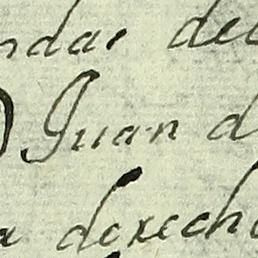 ndas de
Juan d
a derech